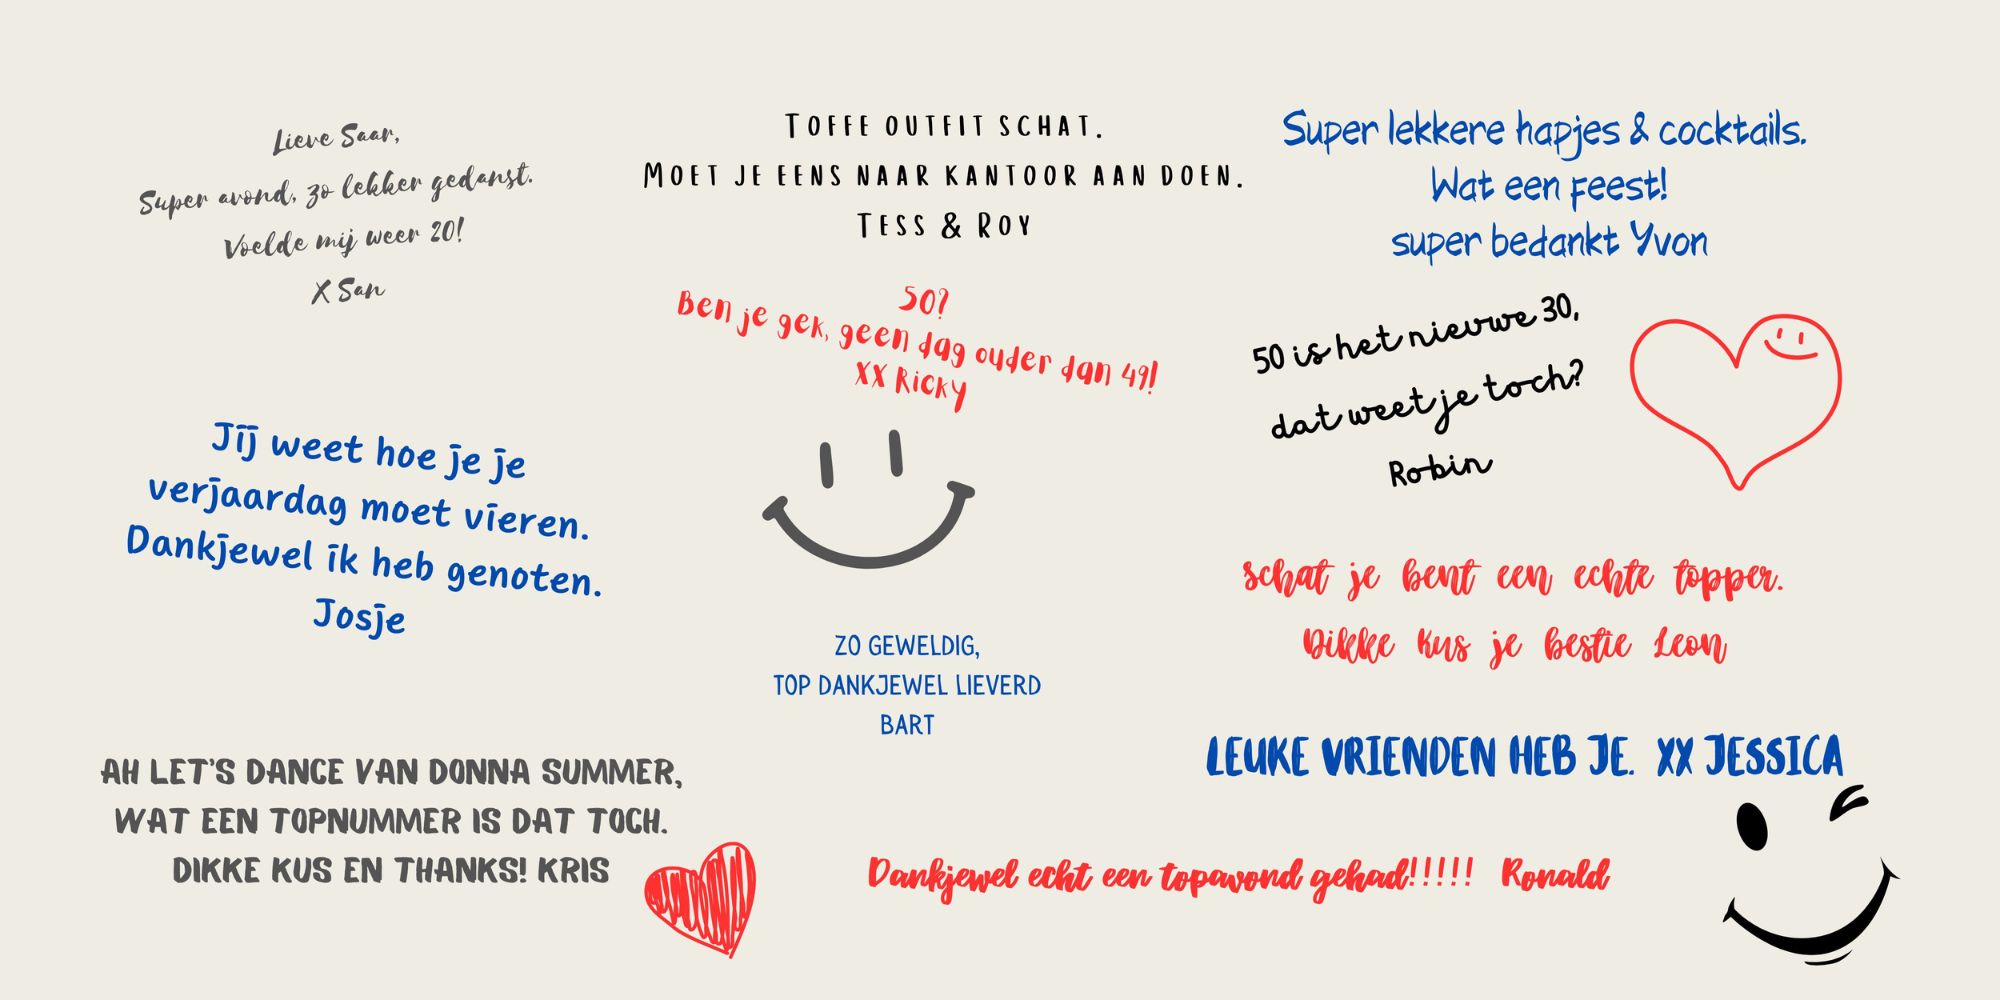 Lieve Saar,
Super avond, zo lekker gedanst.
Voelde mij weer 20!
X San
TOFFE OUTFIT SCHAT.
MOET JE EENS NAAR KANTOOR AAN DOEN.
TESS & ROY
Super lekkere hapjes & cocktails.
Wat een feest!
super bedankt Yvon
50?
Ben je gek, geen dag ouder dan 49!
XX Ricky
50 is het nieuwe 30,
dat weet je toch?
Robin
Jij weet hoe je je
verjaardag moet vieren.
Dankjewel ik heb genoten.
Josje
schat je bent een echte topper.
Dikke kus je bestie Leon
ZO GEWELDIG,
TOP DANKJEWEL LIEVERD
BART
AH LET'S DANCE VAN DONNA SUMMER,
WAT EEN TOPNUMMER IS DAT TOCH.
DIKKE KUS EN THANKS! KRIS
LEUKE VRIENDEN HEB JE. XX JESSICA
Dankjewel echt een topavond gehad!!!!! Ronald